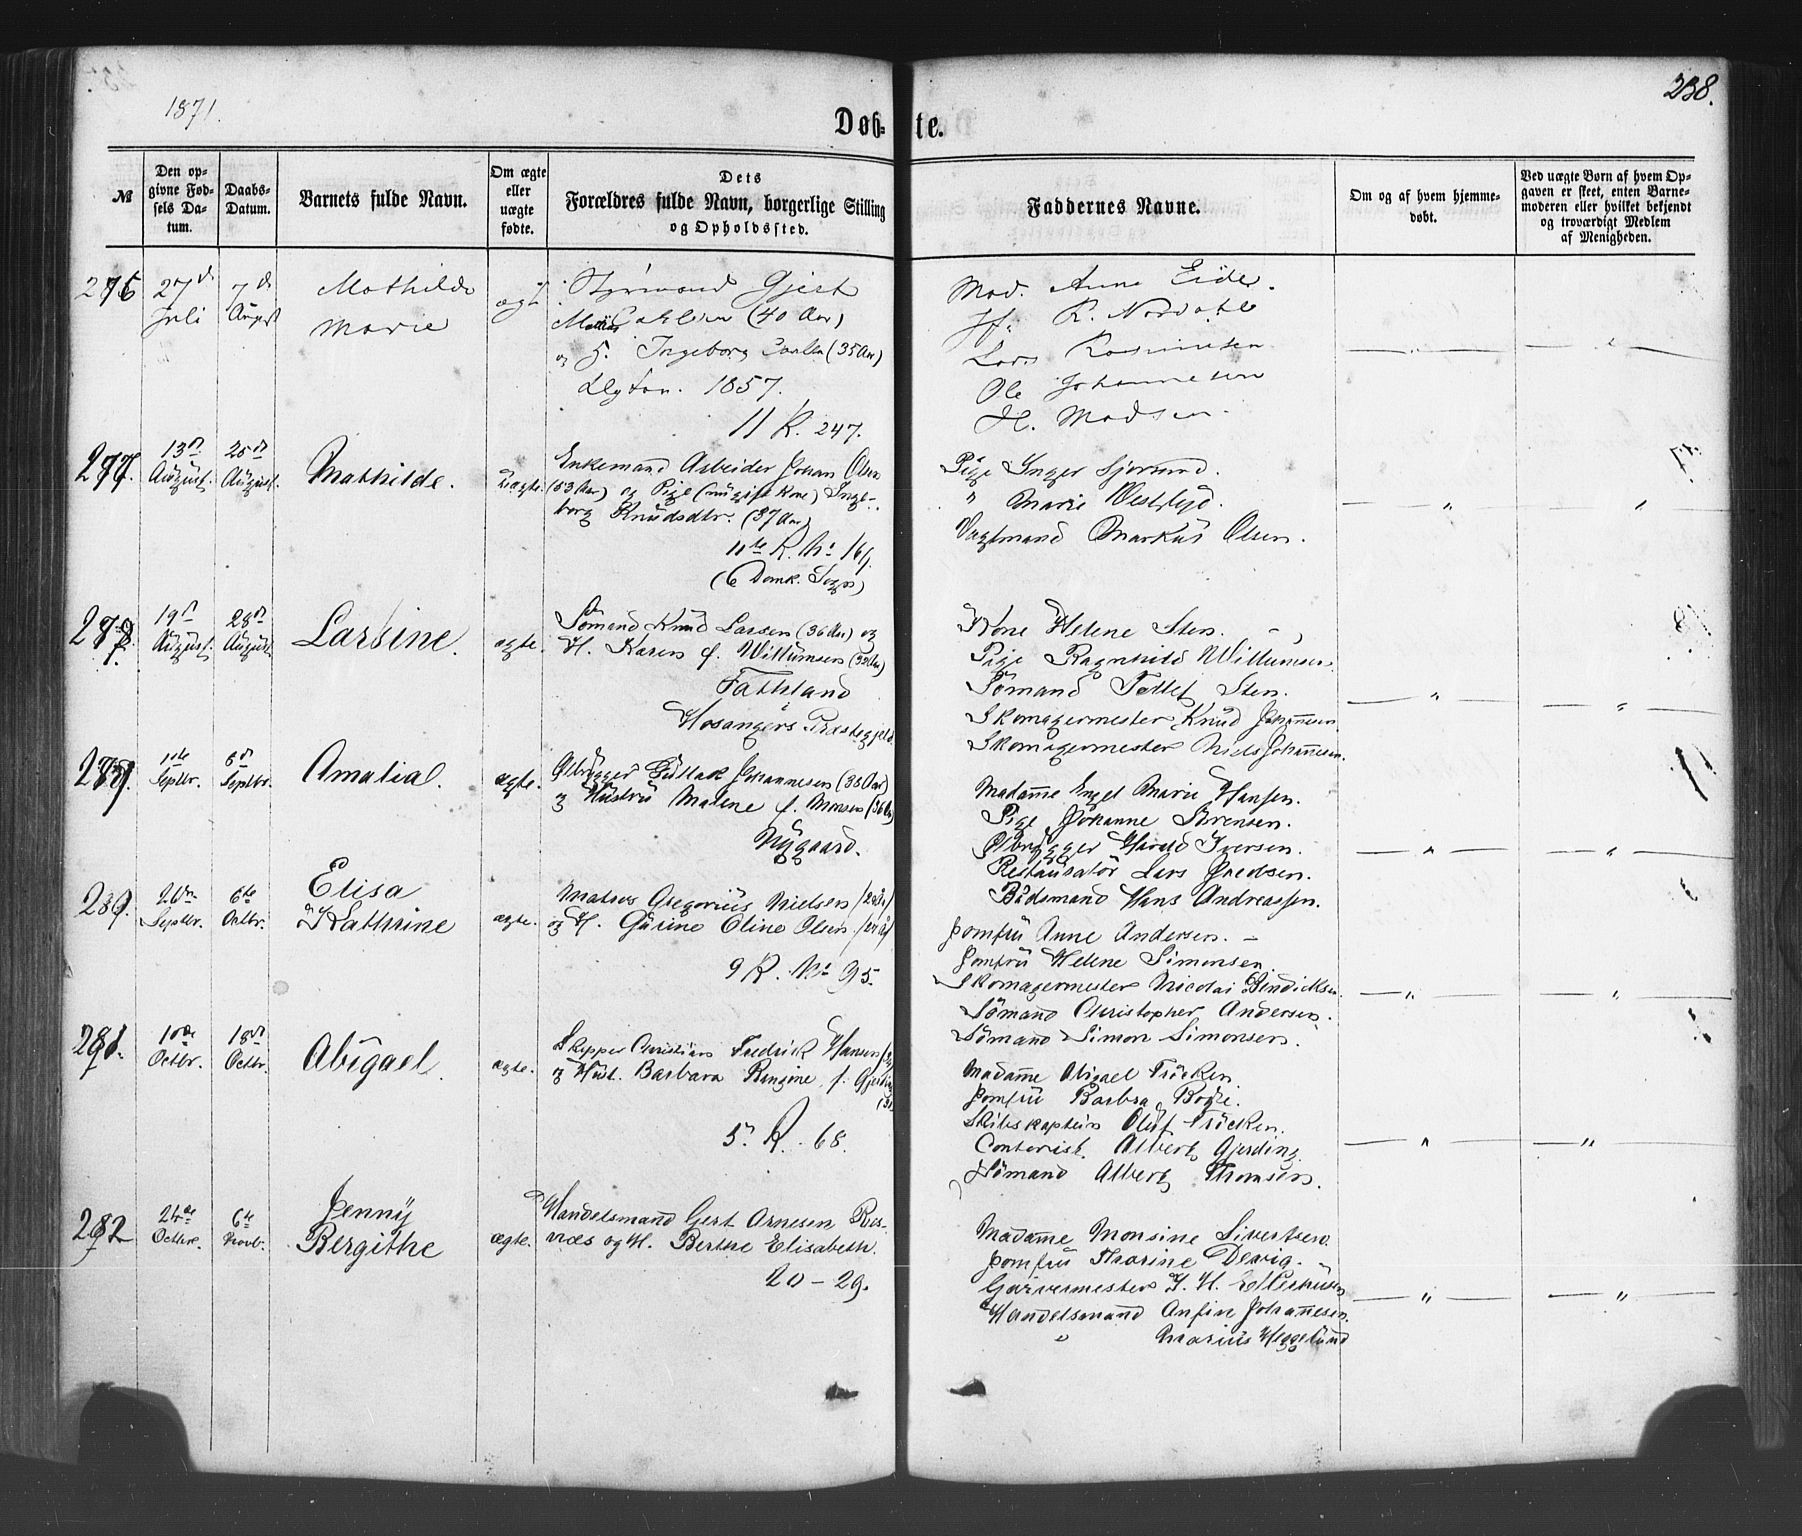 1871.
238.
Døb- te.
№
Den op-
givne Fød-
sels Da-
tum.
Daabs-
Datum.
Barnets fulde Navn.
Om ægte
eller
uægte
fødte.
Dets
Forældres fulde Navn, borgerlige Stilling
og Opholdssted.
Faddernes Navne.
Om og af hvem hjemme-
døbt.
Ved uægte Børn af hvem Op-
gaven er skeet, enten Barne-
moderen eller hvilket bekjendt
og troværdigt Medlem
af Menigheden.
276
27d Juli
7d August
Mathilde
Marie
ægt
Styrmand Gjert
(40 Aar)
og H. Ingeborg (35 Aar)
1857.
11 R. 247.
Mad. Anna Eide.
Jf. R. Nordahl
Lars Rasmusen
Ole Johannesen
H. Madsen.
277.
13d August.
25d August.
Mathilde.
uægte.
Enkemand Arbeider Johan Olsen
(53 Aar) og Pige (nu gift Kone) Inge-
borg Knudsdtr. (37 Aar)
11te R. No 161.
(6 Domk. Sogn)
Pige Inger
" Marie
Vagtmand Markus Olsen.
278.
19d August.
28d August.
Larsine.
ægte.
Sömand Knud Larsen (36 Aar) og
H. Karen f. Willumsen (32 Aar)
Hosangers Præstegjeld.
Kone Helene Sten.
Pige Ragnhild Willumsen.
Sömand Tollef Sten.
Skomagermester Knud Johannesen
Skomagermester Niels Johannesen.
279.
Septbr.
Septbr.
Amalia.
ægte.
Ølbrygger Gullak Johannesen (38 Aar)
og Hustru Malene f. Monsen (36 Aar)
Nygaard.
Madame Engel Marie Hansen.
Pige Johanne Sörensen.
Ølbrygger Harald Iversen.
Restauratör Lars Knedsen.
Bådsmand Hans Andreassen.
280.
26de Septbr.
6te Octbr.
Elisa
Kathrine
ægte.
Matros Gregorius Nielsen
og H. Gurine Eline Olsen
9 R. No 95.
Jomfru Anne Andersen.
Jomfru Helene Simonsen
Skomagermester Nicolai Bendicksen.
Sömand Christopher Andersen.
Sömand Simon Simonsen.
281.
10de Octbr.
18de Octbr.
Abigael.
ægte.
Skipper Christian Fredrick Hansen
og Hust. Barbara Rangine f. Gjerding
5. R. 68.
Madame Abigael Fröcken
Jomfru Barbra Böje.
Skibskaptein Oluf Fröcken.
Contorist Albert Gjerding
Sömand Albert Thomsen.
282
24de Octbr.
6te Novb.
Jenny
Bergithe
ægte.
Handelsmand Gert Arnesen Ros-
næs og H. Berthe Elisabeth.
20 - 29.
Madame Monsine Sivertsen.
Jomfru Thorine Devig.
Garvermester J. H. Ellerhusen
Handelsmand Anfin Johannesen.
" Marius Heggelund